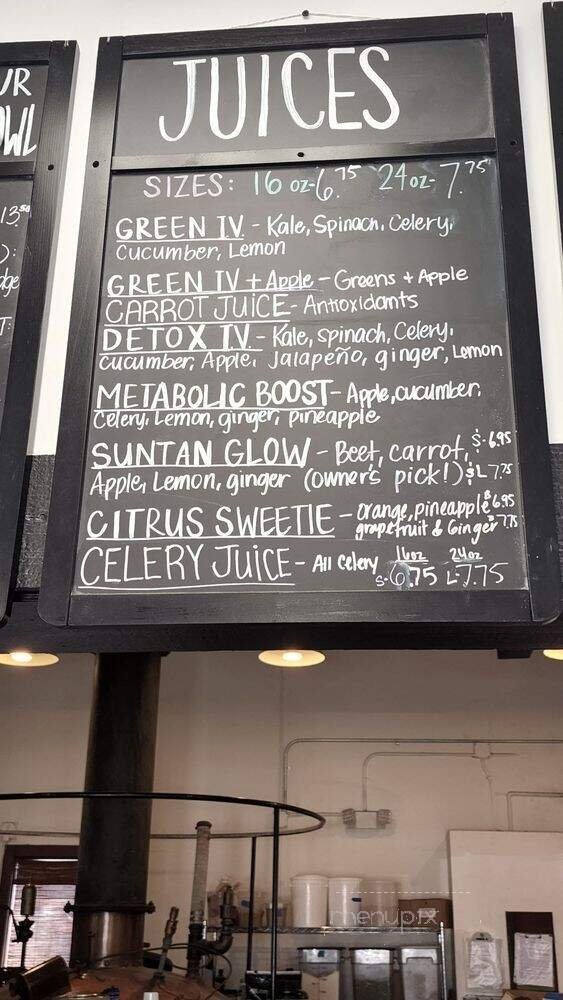 UR
OWL
13.50
):
dge
T:
JUICES
SIZES: 16 oz-6.75 24oz-7.75
GREEN IV. - Kale, Spinach, Celery,
Cucumber, Lemon
GREEN IV + Apple - Greens + Apple
CARROT JUICE - Antioxidants
DETOX IV. - Kale, spinach, Celery,
cucumber, Apple, Jalapeño, ginger, Lemon
METABOLIC BOOST - Apple, cucumber,
Celery, Lemon, ginger, pineapple
SUNTAN GLOW - Beet, carrot, S-6.95
Apple, Lemon, ginger (owner's pick!) L 7.75
CITRUS SWEETIE - orange, pineapple $6.95
grapefruit & Ginger 7.75
CELERY JUICE - All Celery 16oz 24oz
S-6.75 L-7.75
menupix